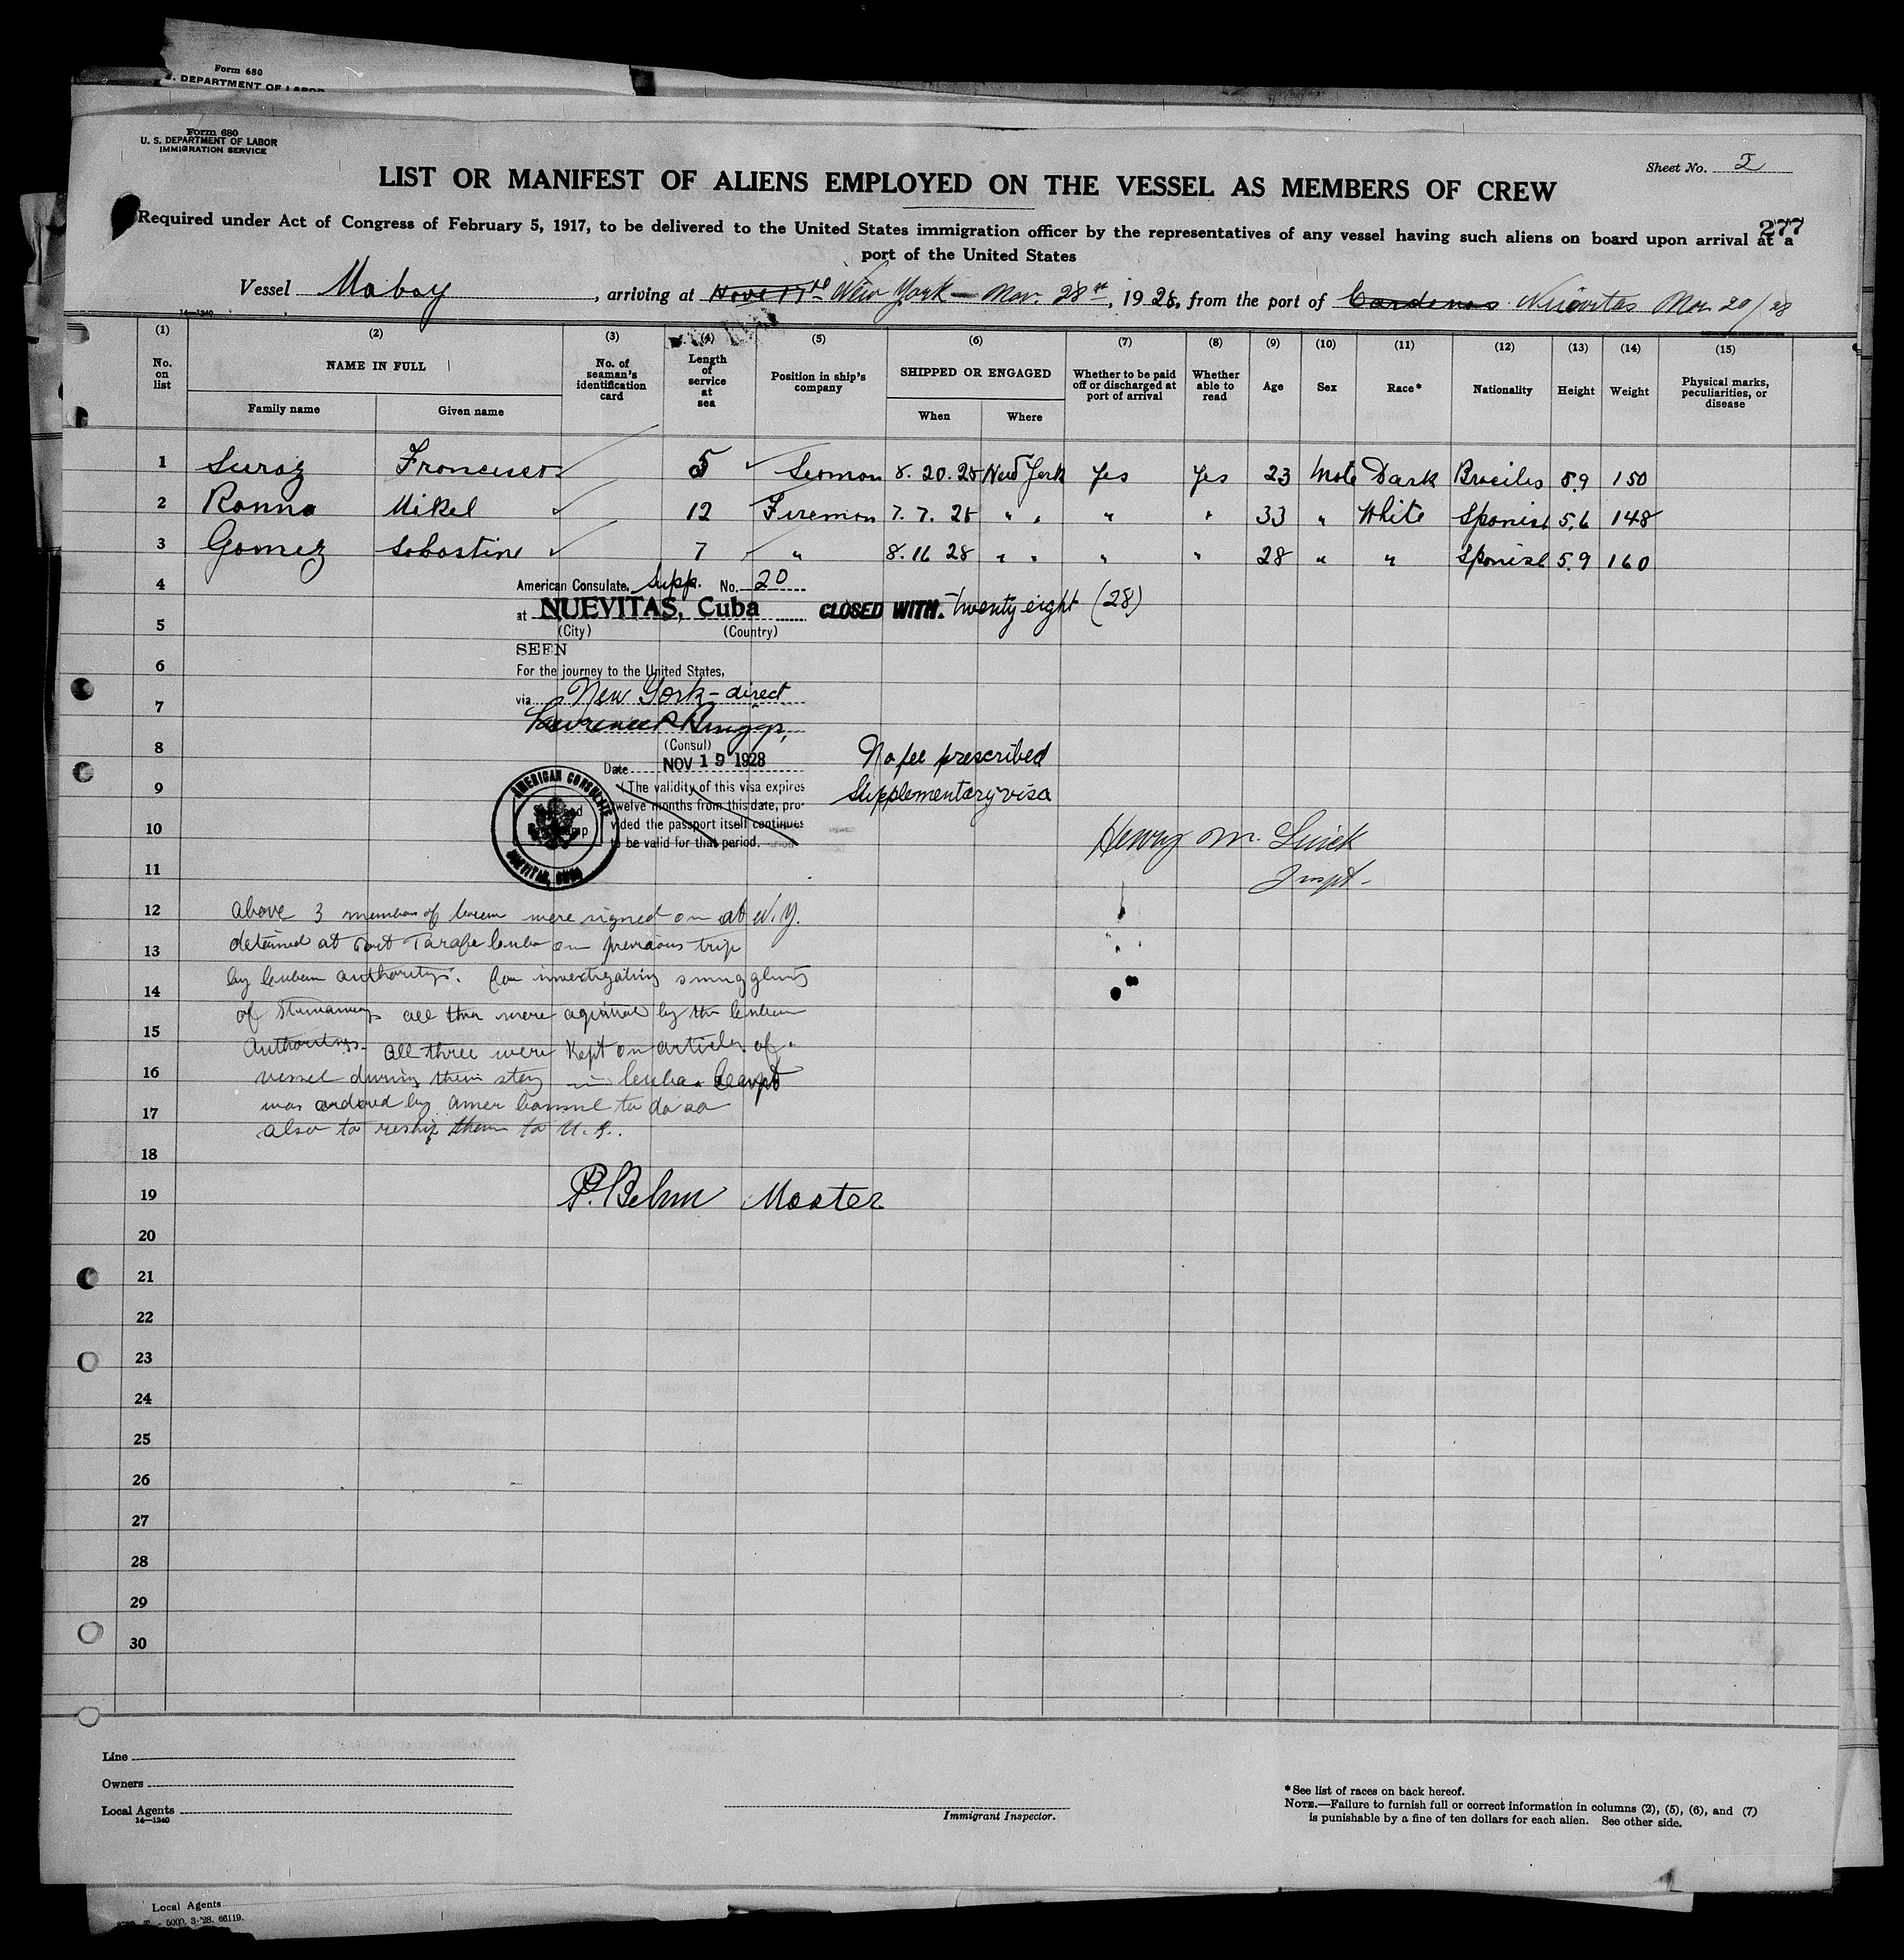 Form 680
U. S. DEPARTMENT OF LABOR
Form 680
U. S. DEPARTMENT OF LABOR
IMMIGRATION SERVICE
Sheet No. 2
LIST OR MANIFEST OF ALIENS EMPLOYED ON THE VESSEL AS MEMBERS OF CREW
277
Required under Act of Congress of February 5, 1917, to be delivered to the United States immigration officer by the representatives of any vessel having such aliens on board upon arrival at a
port of the United States
Vessel Mabay, arriving at Nove 17th New York — Nov. 28th, 1928, from the port of Cardenas Nuevitas Nov 20/28
14—1240
(1) (2) (3) (4) (5) (6) (7) (8) (9) (10) (11) (12) (13) (14) (15)
No. on list NAME IN FULL No. of seaman's identification card Length of service at sea Position in ship's company SHIPPED OR ENGAGED Whether to be paid off or discharged at port of arrival Whether able to read Age Sex Race* Nationality Height Weight Physical marks, peculiarities, or disease
Family name Given name When Where
1 Suraz Francisco 5 Seaman 8. 20. 28 New York Yes Yes 23 Male Dark Braziles 5.9 150
2 Ranna Mikel 12 Fireman 7. 7. 28 " " " " 33 " White Spanish 5.6 148
3 Gomez Sabastine 7 " 8. 16 28 " " " " 28 " " Spanish 5.9 160
4
American Consulate. Supp. No. 20
5
at NUEVITAS, Cuba CLOSED WITH. twenty eight (28)
(City) (Country)
SEEN
6
For the journey to the United States,
7
via New York - direct
Lawrence P. Briggs,
8
(Consul) No fee prescribed
Date NOV 19 1928
9
(The validity of this visa expires Supplementary visa
twelve months from this date, pro-
10
vided the passport itself continues
to be valid for that period.
AMERICAN CONSULATE
NUEVITAS, CUBA
Henry M.
11
Inspt.
12
above 3 members of crew were signed on at N.Y.
13
detained at Port Tarafa Cuba on previous trip
14
by Cuban authoritys. for investigating smuggling
of all three were by the Cuban
15
Authoritys. all three were kept on articles of
16
vessel during their stay in Cuba. Capt
17
was ordered by Amer Consul to do so
also to reship them to U.S.
18
19
P. Behm Master
20
21
22
23
24
25
26
27
28
29
30
Line
Owners
Local Agents
14—1240
Immigrant Inspector.
*See list of races on back hereof.
NOTE.—Failure to furnish full or correct information in columns (2), (5), (6), and (7)
is punishable by a fine of ten dollars for each alien. See other side.
Local Agents
5000. 3-'28. 66119.